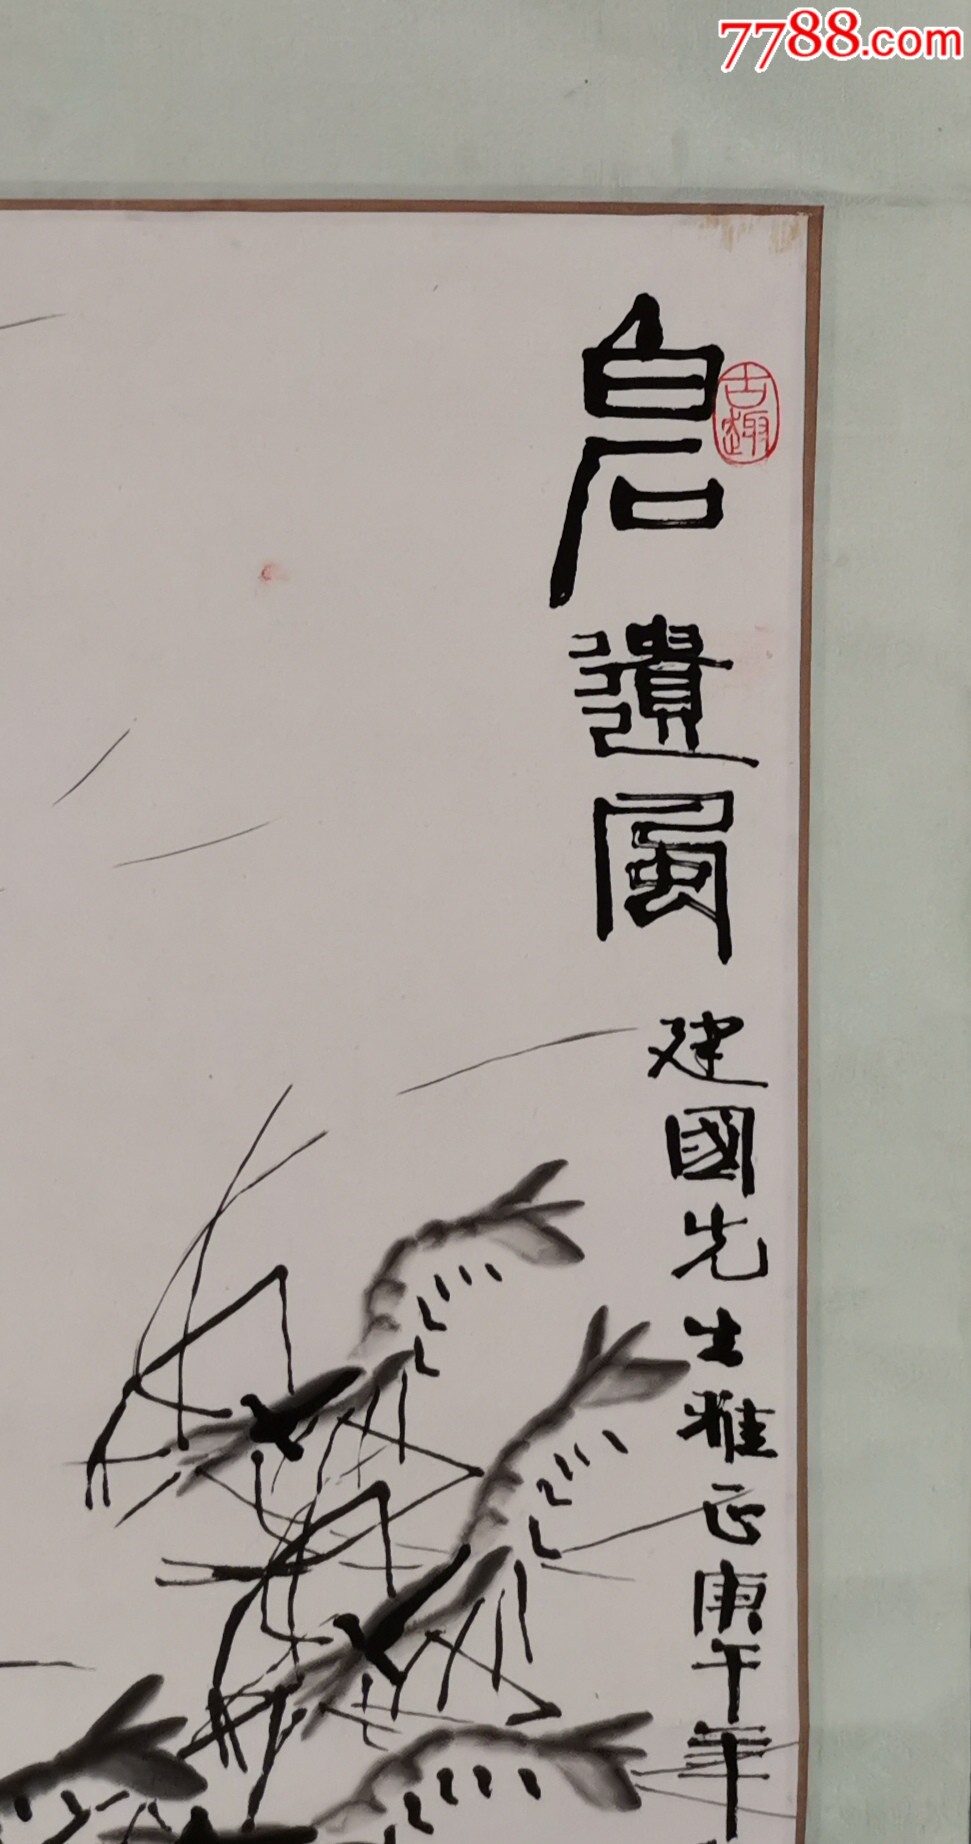 7788.com
白石遺風
古趣
建國先生雅正庚午年